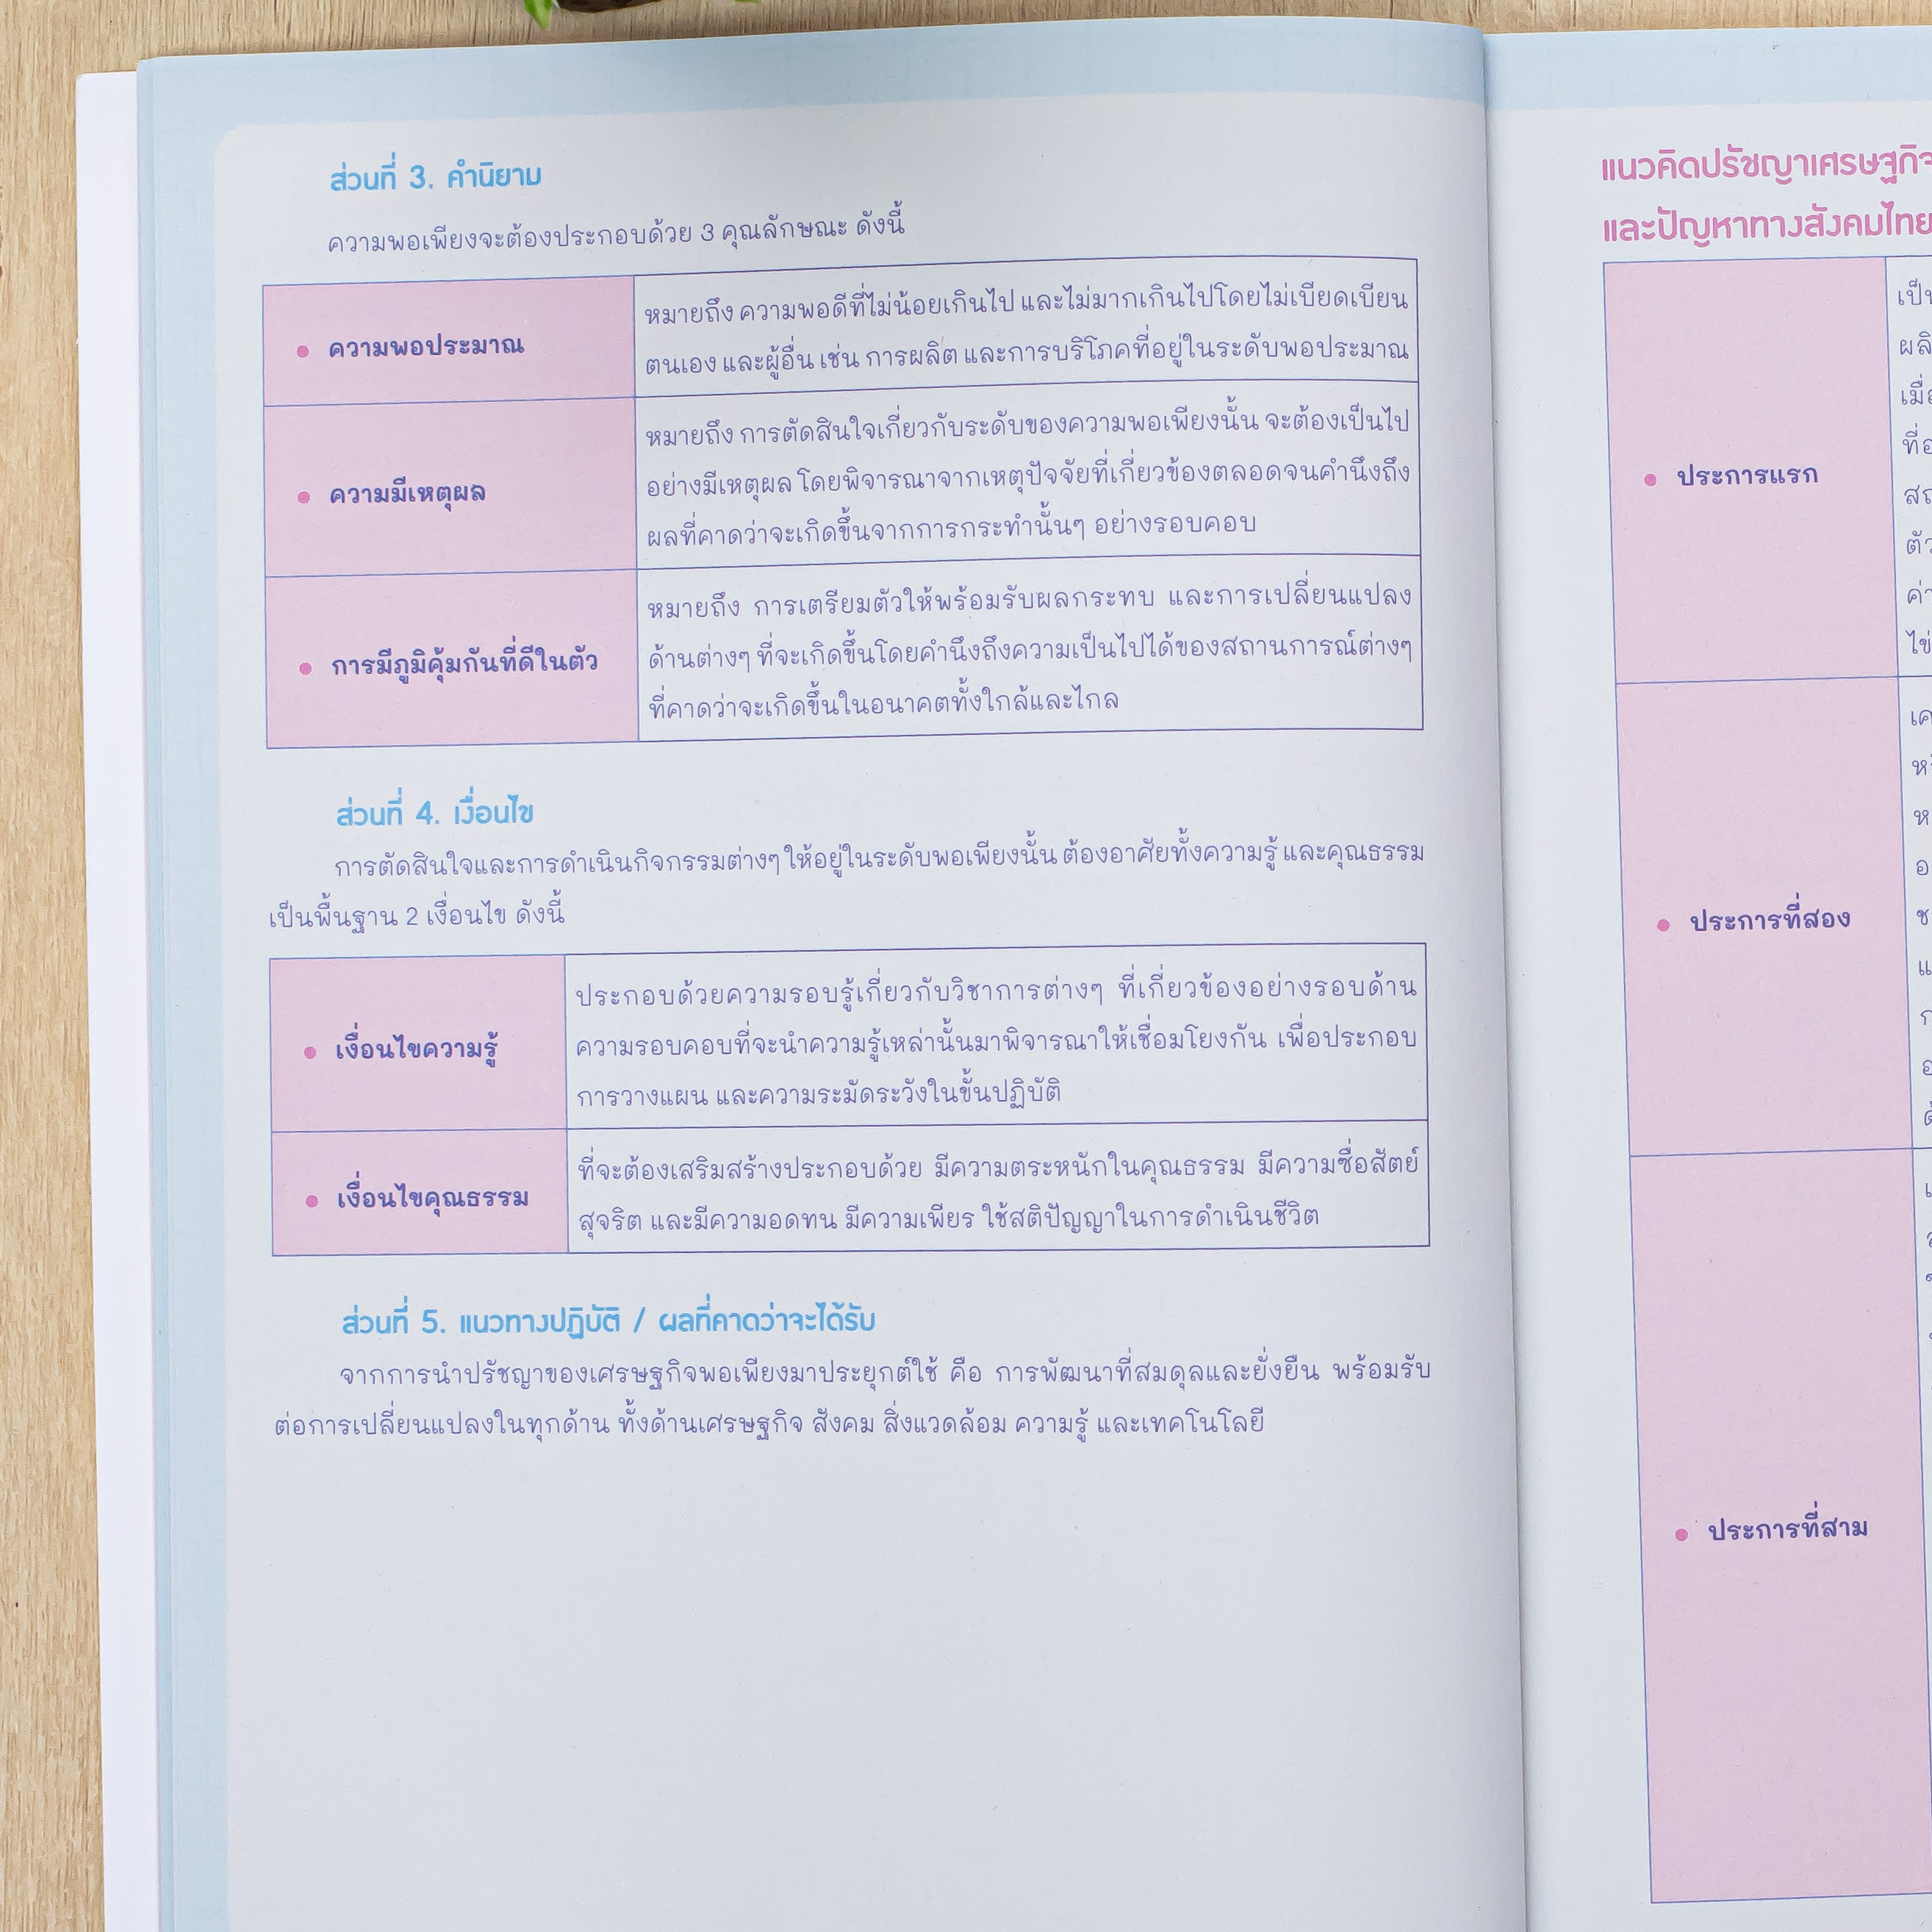 ส่วนที่ 3. คำนิยาม
ความพอเพียงจะต้องประกอบด้วย 3 คุณลักษณะ ดังนี้
• ความพอประมาณ
หมายถึง ความพอดีที่ไม่น้อยเกินไป และไม่มากเกินไปโดยไม่เบียดเบียน
ตนเอง และผู้อื่น เช่น การผลิต และการบริโภคที่อยู่ในระดับพอประมาณ
• ความมีเหตุผล
หมายถึง การตัดสินใจเกี่ยวกับระดับของความพอเพียงนั้น จะต้องเป็นไป
อย่างมีเหตุผล โดยพิจารณาจากเหตุปัจจัยที่เกี่ยวข้องตลอดจนคำนึงถึง
ผลที่คาดว่าจะเกิดขึ้นจากการกระทำนั้นๆ อย่างรอบคอบ
• การมีภูมิคุ้มกันที่ดีในตัว
หมายถึง การเตรียมตัวให้พร้อมรับผลกระทบ และการเปลี่ยนแปลง
ด้านต่างๆ ที่จะเกิดขึ้นโดยคำนึงถึงความเป็นไปได้ของสถานการณ์ต่างๆ
ที่คาดว่าจะเกิดขึ้นในอนาคตทั้งใกล้และไกล
ส่วนที่ 4. เงื่อนไข
การตัดสินใจและการดำเนินกิจกรรมต่างๆ ให้อยู่ในระดับพอเพียงนั้น ต้องอาศัยทั้งความรู้ และคุณธรรม
เป็นพื้นฐาน 2 เงื่อนไข ดังนี้
• เงื่อนไขความรู้
ประกอบด้วยความรอบรู้เกี่ยวกับวิชาการต่างๆ ที่เกี่ยวข้องอย่างรอบด้าน
ความรอบคอบที่จะนำความรู้เหล่านั้นมาพิจารณาให้เชื่อมโยงกัน เพื่อประกอบ
การวางแผน และความระมัดระวังในขั้นปฏิบัติ
• เงื่อนไขคุณธรรม
ที่จะต้องเสริมสร้างประกอบด้วย มีความตระหนักในคุณธรรม มีความซื่อสัตย์
สุจริต และมีความอดทน มีความเพียร ใช้สติปัญญาในการดำเนินชีวิต
ส่วนที่ 5. แนวทางปฏิบัติ / ผลที่คาดว่าจะได้รับ
จากการนำปรัชญาของเศรษฐกิจพอเพียงมาประยุกต์ใช้ คือ การพัฒนาที่สมดุลและยั่งยืน พร้อมรับ
ต่อการเปลี่ยนแปลงในทุกด้าน ทั้งด้านเศรษฐกิจ สังคม สิ่งแวดล้อม ความรู้ และเทคโนโลยี
แนวคิดปรัชญาเศรษฐกิจ
และปัญหาทางสังคมไทย
• ประการแรก
• ประการที่สอง
• ประการที่สาม